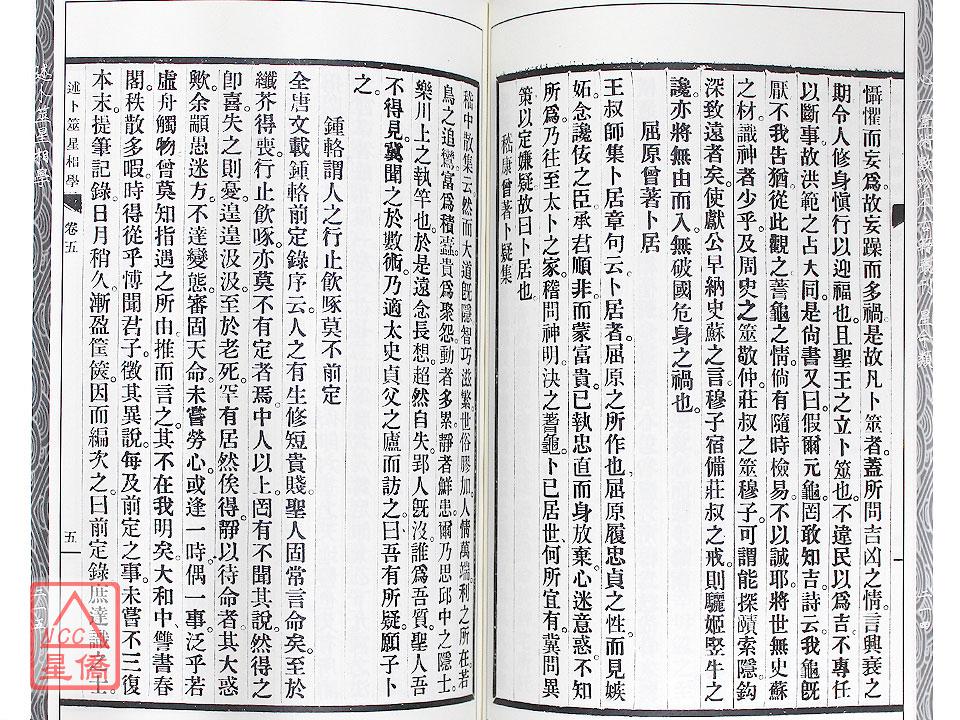 懾懼而妄爲故妄躁而多禍是故凡卜筮者蓋所問吉凶之情言興衰之
期令人修身愼行以迎福也且聖王之立卜筮也不違民以爲吉不專任
以斷事故洪範之占大同是尙書又曰假爾元龜罔敢知吉詩云我龜旣
厭不我告猶從此觀之蓍龜之情倘有隨時檢易不以誠耶將世無史蘇
之材識神者少乎及周史之筮敬仲莊叔之筮穆子可謂能探賾索隱鈎
深致遠者矣使獻公早納史蘇之言穆子宿備莊叔之戒則驪姬竪牛之
讒亦將無由而入無破國危身之禍也
屈原曾著卜居
王叔師集卜居章句云卜居者屈原之所作也屈原履忠貞之性而見嫉
妬念讒佞之臣承君順非而蒙富貴己執忠直而身放棄心迷意惑不知
所爲乃往至太卜之家稽問神明決之蓍龜卜己居世何所宜有冀聞異
策以定嫌疑故曰卜居也
嵇康曾著卜疑集
嵇中散集云然而大道旣隱智巧滋繁世俗膠加人情萬端利之所在若
鳥之追鸞富爲積蠹貴爲聚怨動者多累靜者鮮患爾乃思邱中之隱士
樂川上之執竿也於是遠念長想超然自失郢人旣沒誰爲吾質聖人吾
不得見冀聞之於數術乃適太史貞父之廬而訪之曰吾有所疑願子卜
之
鍾輅謂人之行止飮啄莫不前定
全唐文載鍾輅前定錄序云人之有生修短貴賤聖人固常言命矣至於
纖芥得喪行止飮啄亦莫不有定者焉中人以上罔有不聞其說然得之
卽喜失之則憂遑遑汲汲至於老死罕有居然俟得靜以待命者其大惑
歟余顓愚迷方不達變態審固天命未嘗勞心或逢一時偶一事泛乎若
虛舟觸物曾莫知指遇之所由推而言之其不在我明矣大和中讐書春
閣秩散多暇時得從乎博聞君子徵其異說每及前定之事未嘗不三復
本末提筆記錄日月稍久漸盈筐篋因而編次之曰前定錄庶達識之士
述卜筮星相學
卷五
五
NCC
星僑